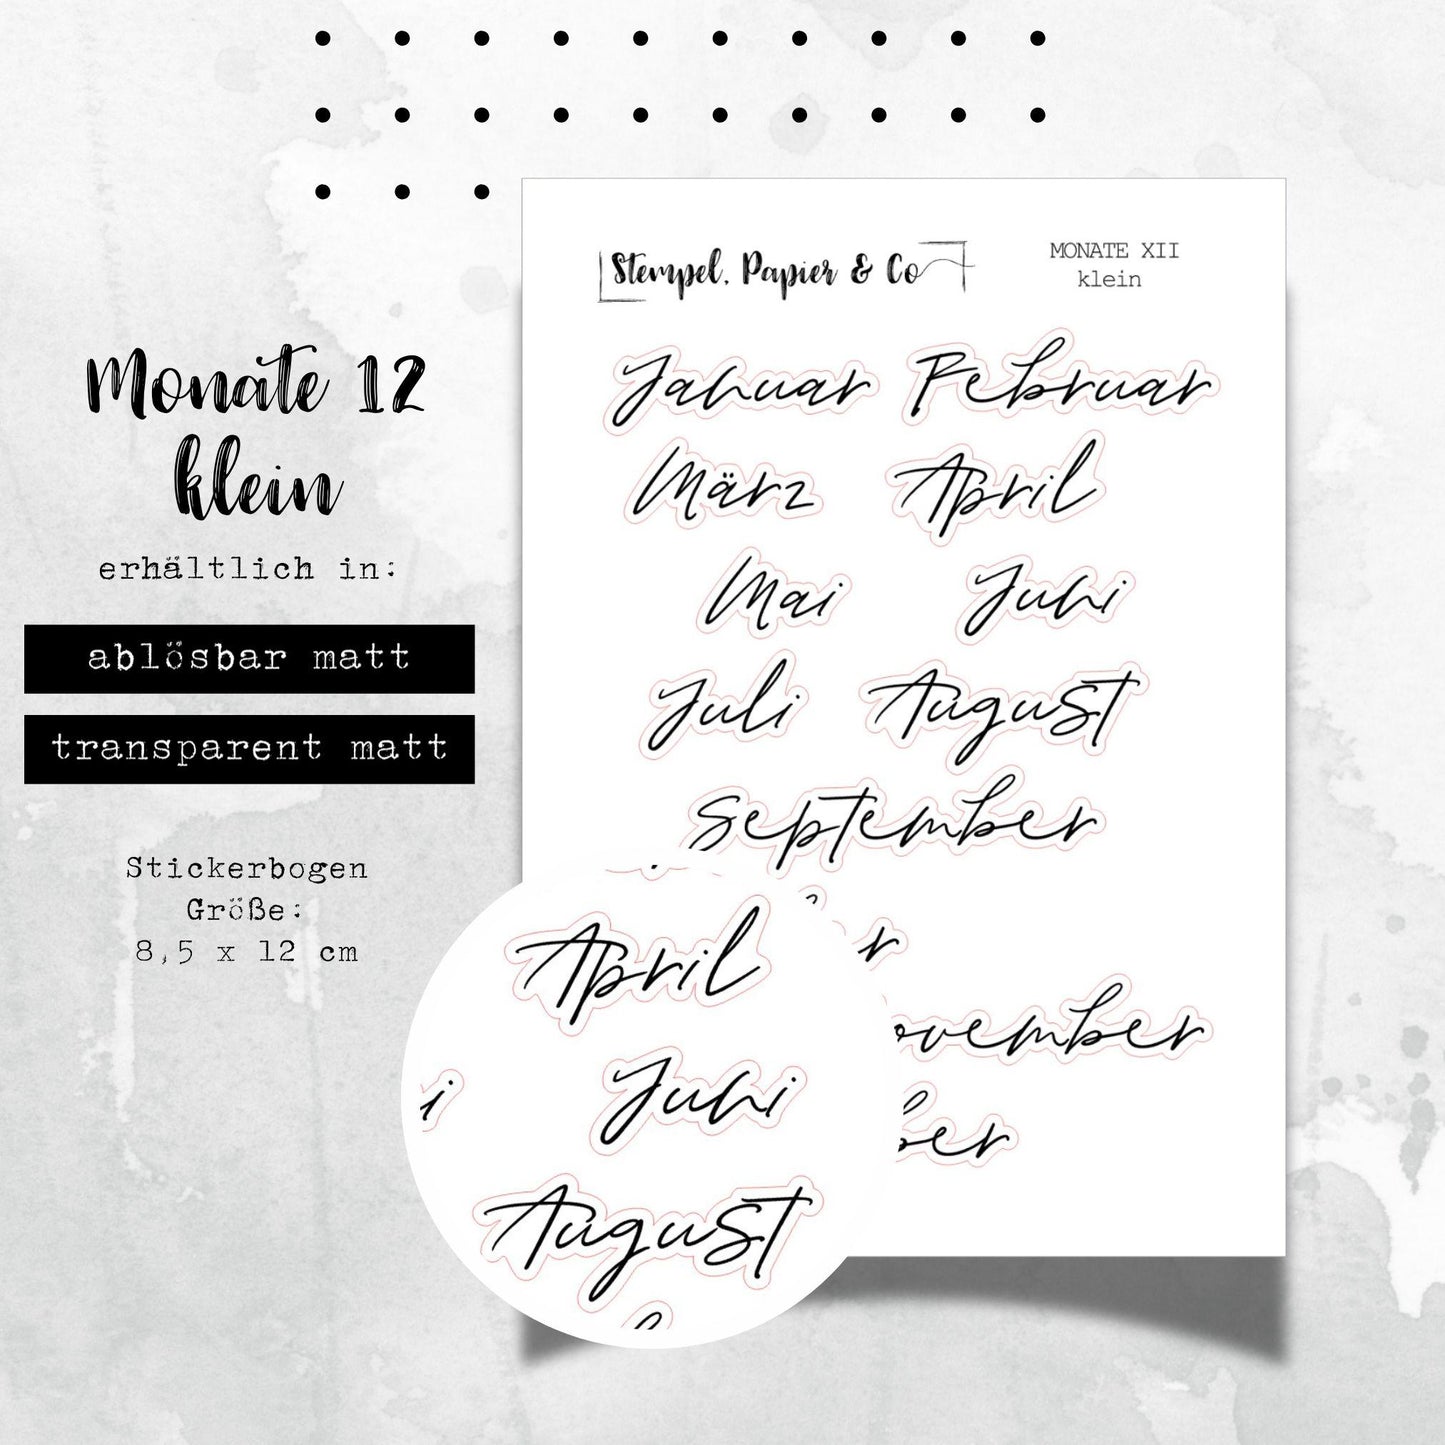 Monate 12
klein
erhältlich in:
ablösbar matt
transparent matt
Stickerbogen
Größe:
8,5 x 12 cm
Stempel, Papier & Co
MONATE XII
klein
Januar Februar
März April
Mai Juni
Juli August
September
r
ovember
ber
April
i Juni
August